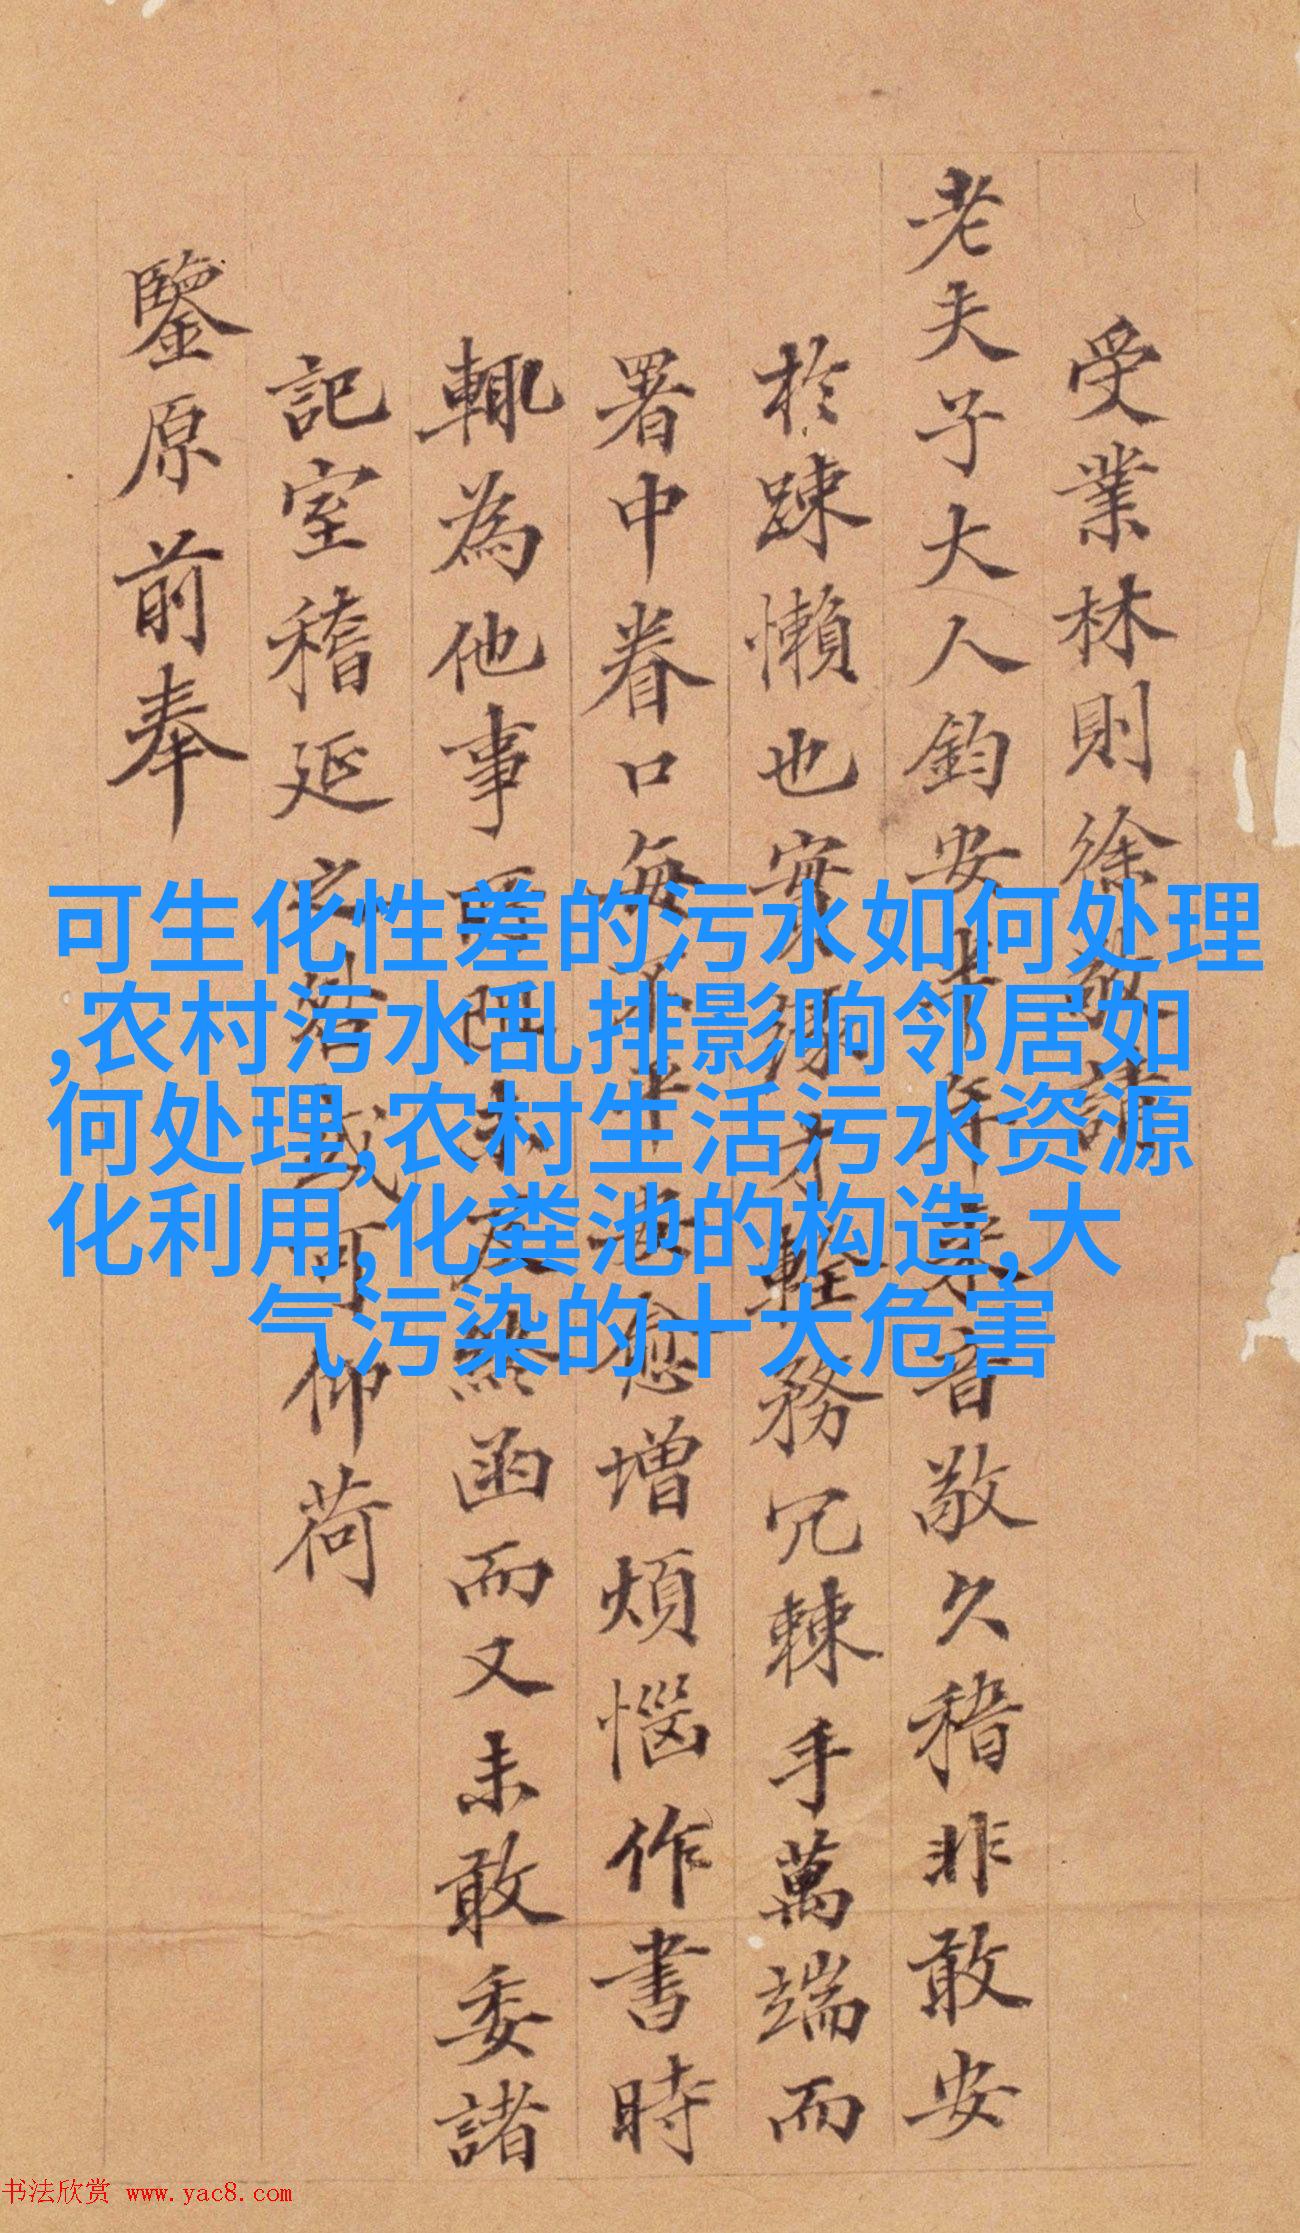 受業林則徐敬請
老夫子大人鈞安半年來音敬久稽非敢安
於踈懶也實緣才輕務冗棘手萬端而
署中眷口每愈增煩惱作書時
輒為他事所阻未及終函而又未敢委諸
記室稽延之咎或可仰荷
鑒原前奉
可生化性差的污水如何处理
,农村污水乱排影响邻居如
何处理,农村生活污水资源
化利用,化粪池的构造,大
气污染的十大危害
书法欣赏 www.yac8.com